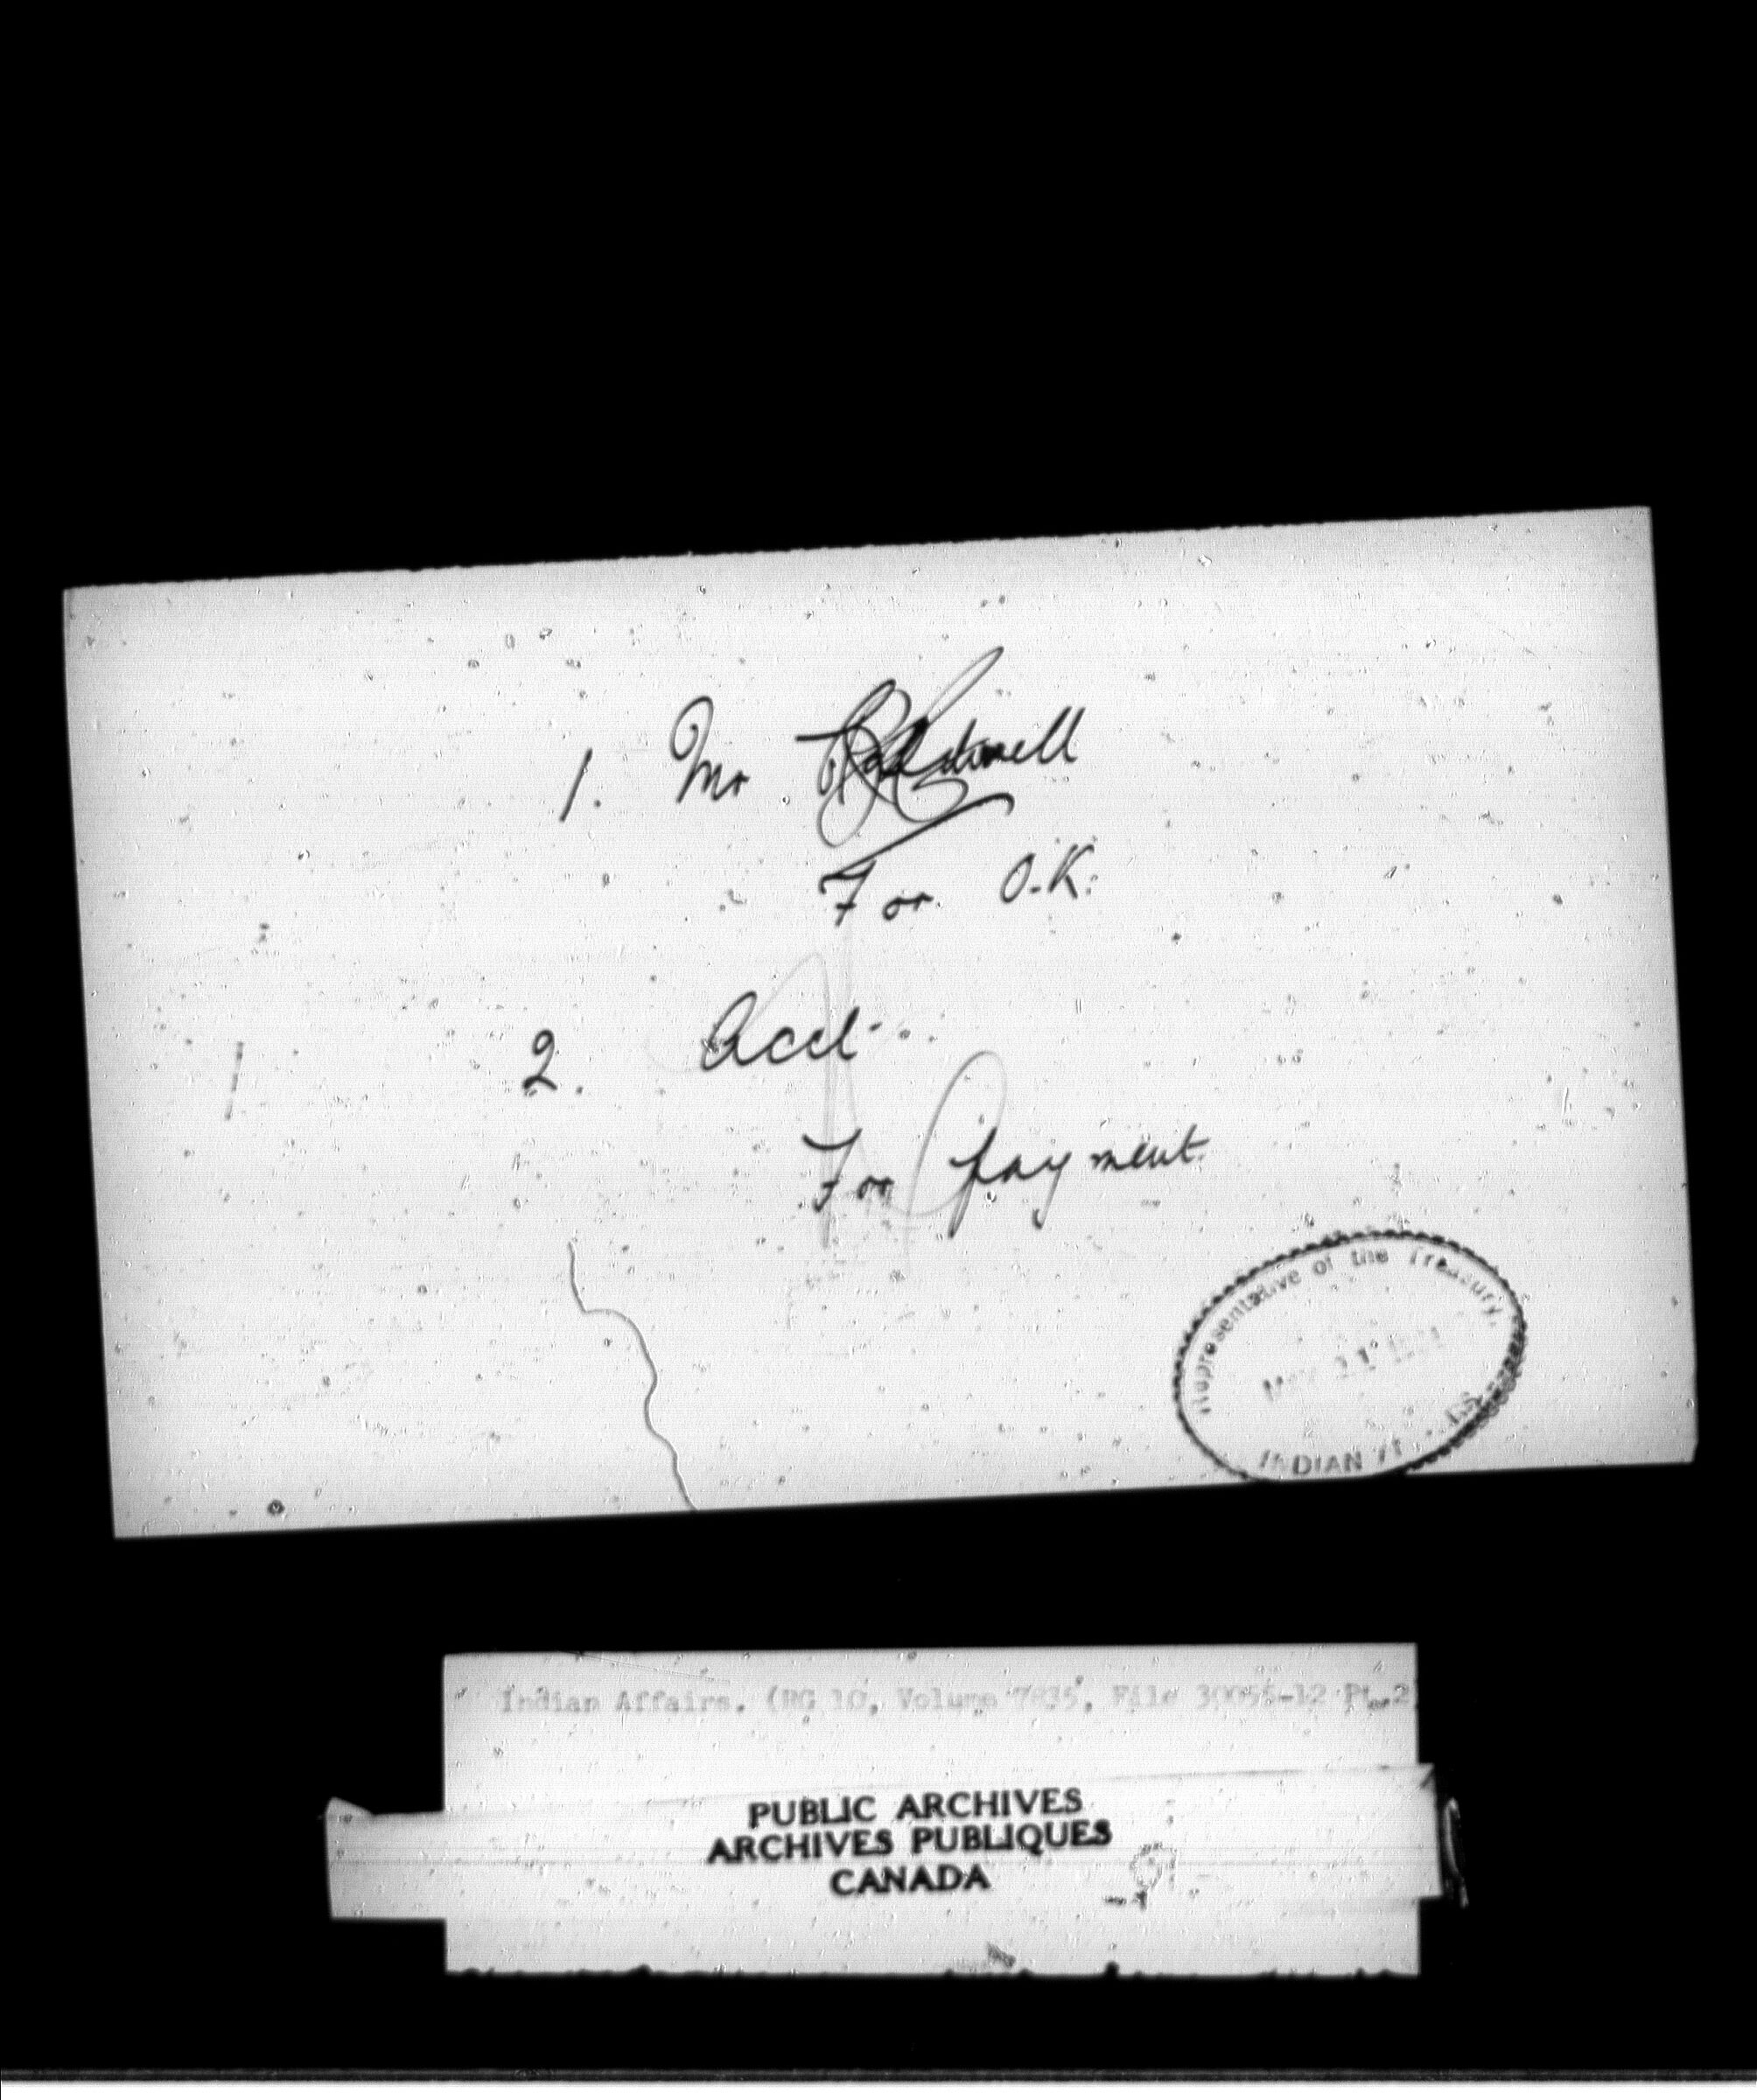 1. Mr
For O.K.
2. Acct.
For payment
Representative of the Treasury,
INDIAN
Indian Affairs. (RG 10, Volume 7835, File 30056-12 Pt. 2
PUBLIC ARCHIVES
ARCHIVES PUBLIQUES
CANADA